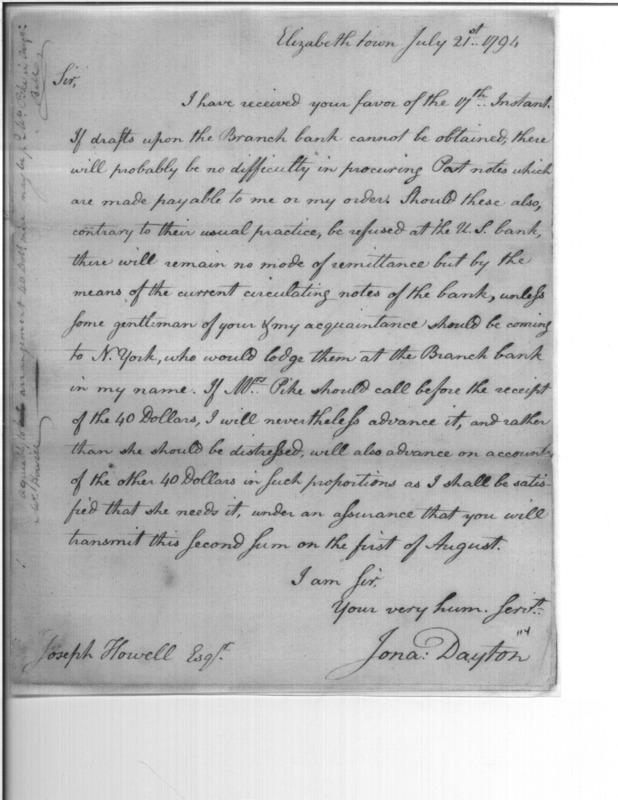 Elizabeth town July 21st. 1794
Sir,
I have received your favor of the 17th. Instant.
If drafts upon the Branch bank cannot be obtained, there
will probably be no difficulty in procuring Post notes which
are made payable to me or my order. Should these also,
contrary to their usual practice, be refused at the U.S. bank,
there will remain no mode of remittance but by the
means of the current circulating notes of the bank, unless
some gentleman of your & my acquaintance should be coming
to N. York, who would lodge them at the Branch bank
in my name. If Mrs. Pike should call before the receipt
of the 40 Dollars, I will nevertheless advance it, and rather
than she should be distressed, will also advance on account
of the other 40 Dollars in such proportions as I shall be satis-
fied that she needs it, under an assurance that you will
transmit this second sum on the first of August.
I am Sir.
Your very hum. Servt.
Jona: Dayton
Joseph Howell Esqr.
arrangement 40 Doll
Howell